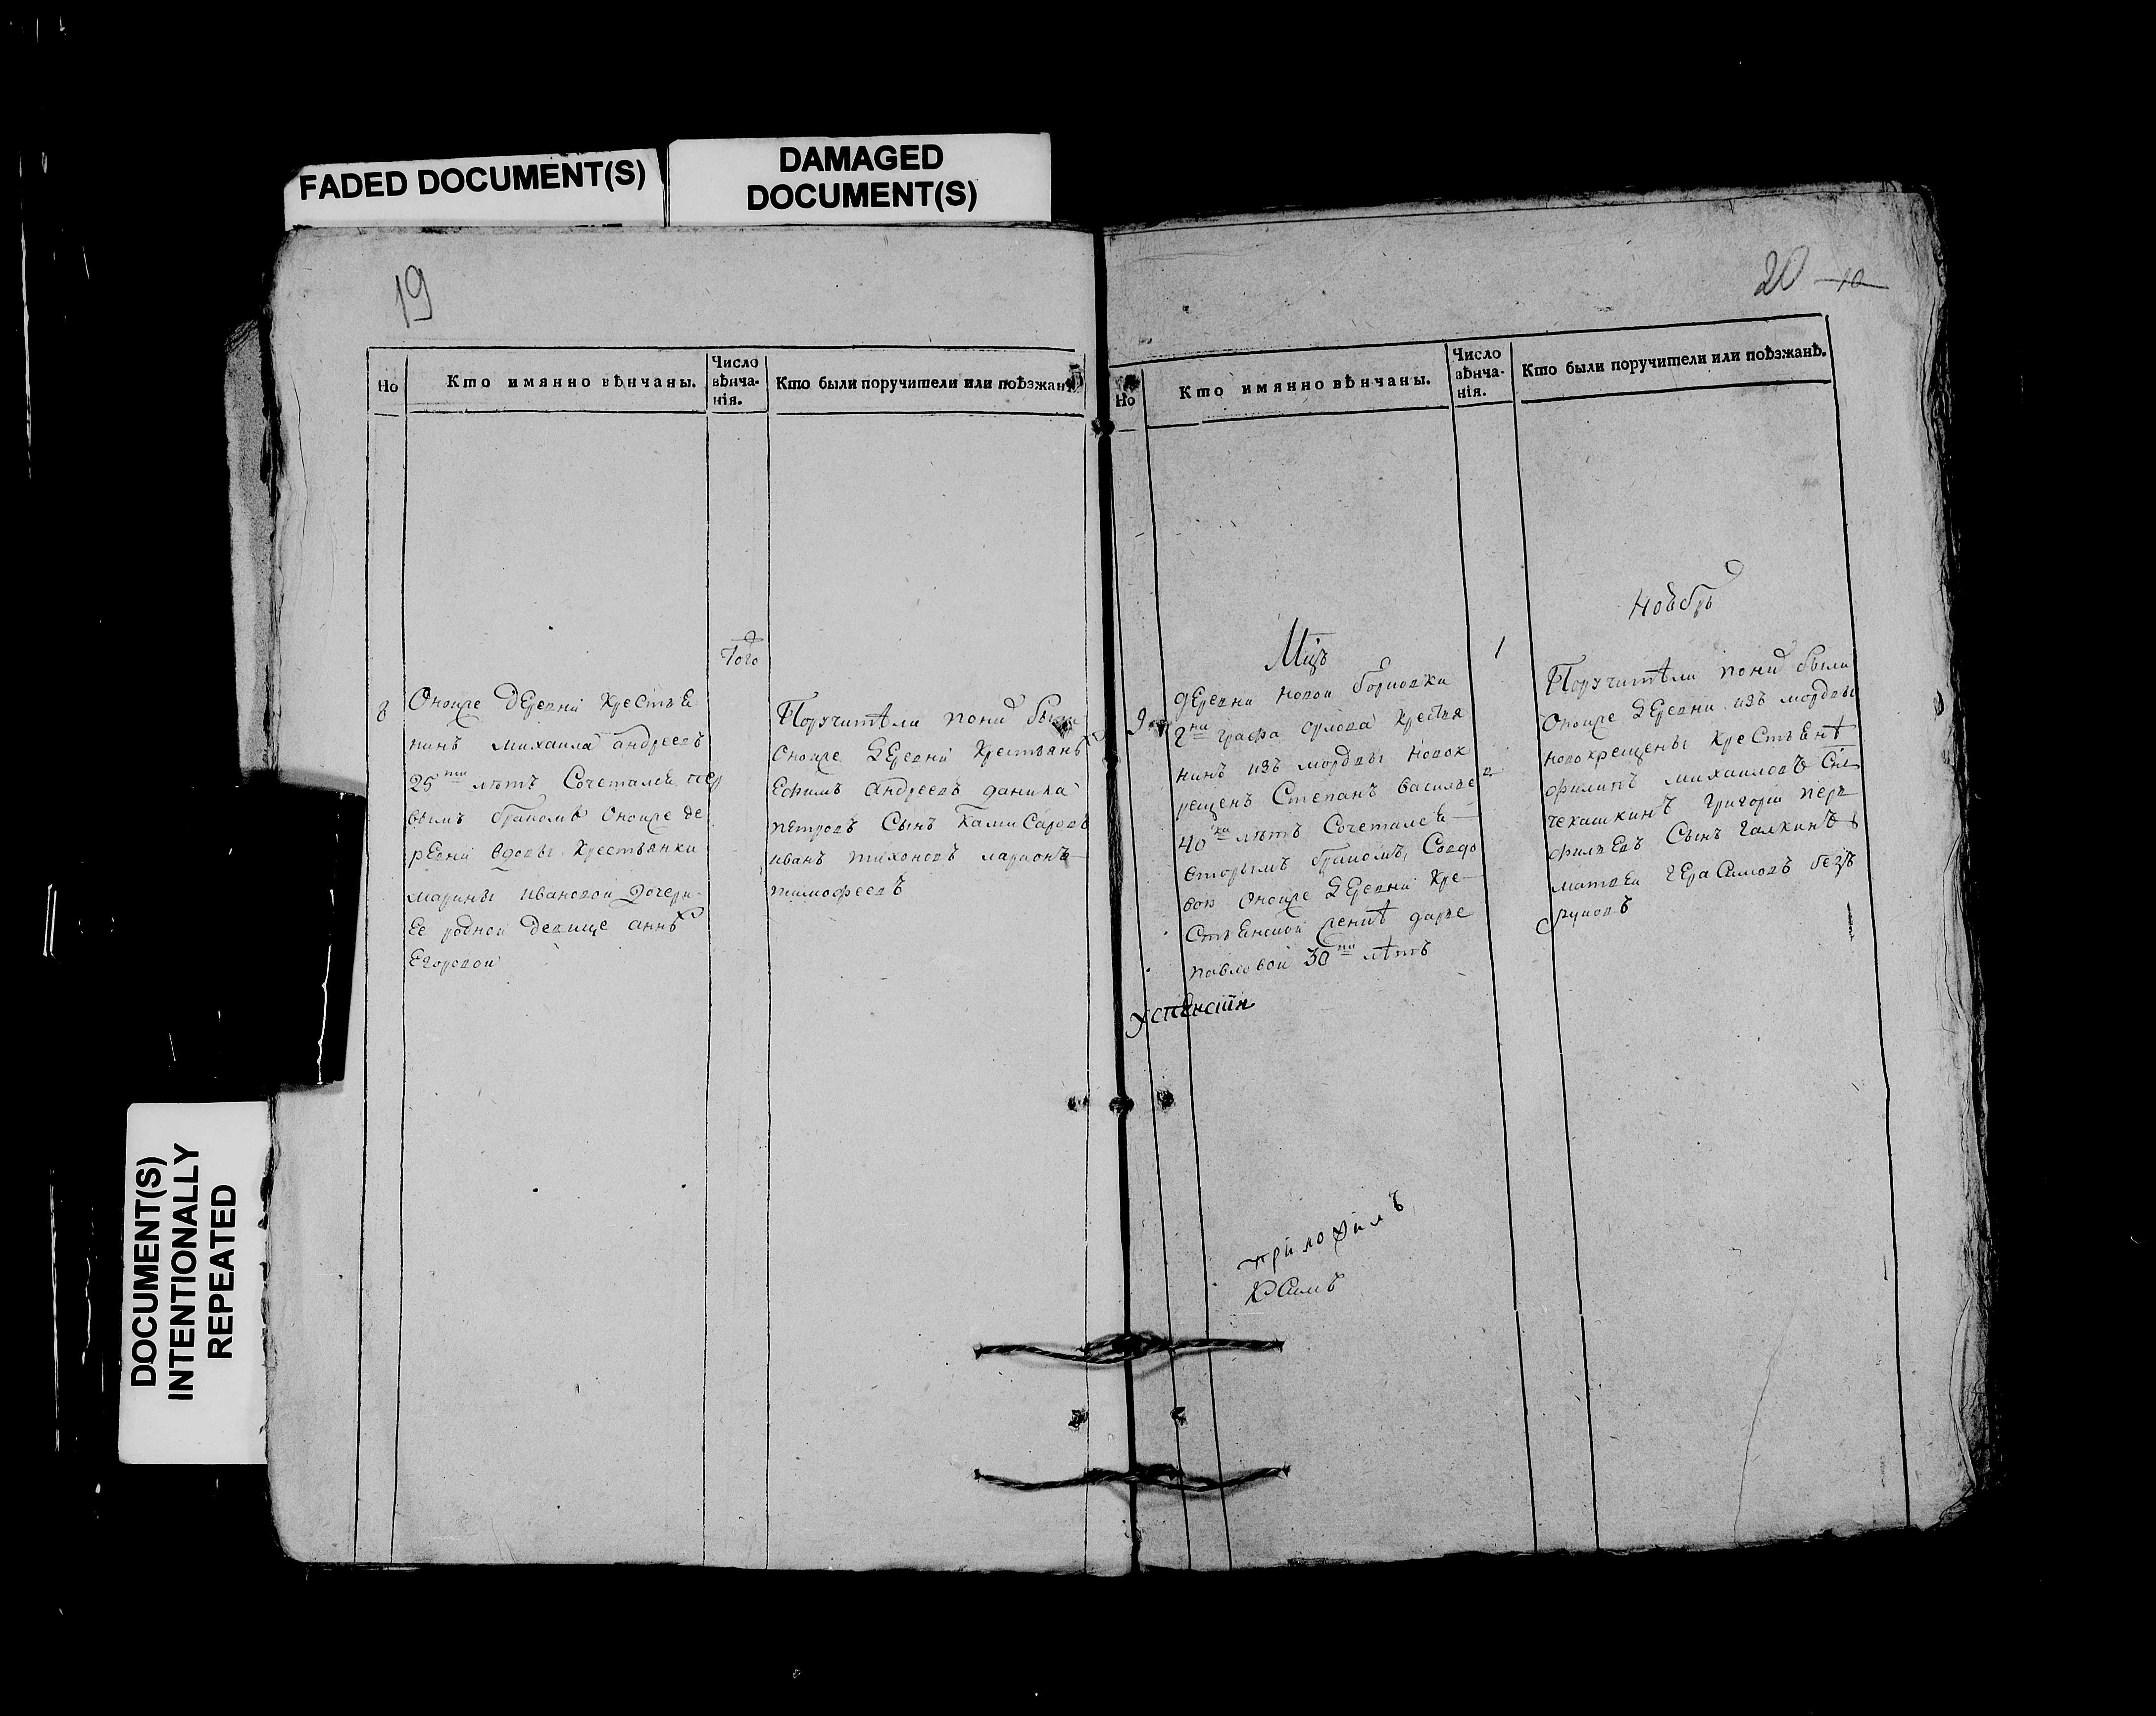 FADED DOCUMENT(S)
DAMAGED
DOCUMENT(S)
DOCUMENT(S)
INTENTIONALLY
REPEATED
19
Но
Кто имянно вѣнчаны.
Число
вѣнча-
нія.
Кто были поручители или поѣзжанѣ
Того
8
Оноиже деревни крестье
нинъ михаила андреевъ
25ти лѣтъ Сочетался пер
вымъ бракомъ Оноиже де
ревни вдовы крестьянки
марины ивановой дочери
Ее родной девице аннѣ
Егоровои
Поручитѣли пони были
Оноиже деревни крестьянѣ
Ефимъ андреевъ данила
петровъ Сынъ Камисаровъ
иванъ тихоновъ ларионъ
тимофеевъ
20
Но
Кто имянно вѣнчаны.
Число
вѣнча-
нія.
Кто были поручители или поѣзжанѣ.
Мцъ
Ноябрь
9
1
деревни новои
графа орлова крестья
нинъ изъ мордвы новок
рещенъ Степанъ василье
40 лѣтъ Сочетался
вторымъ бракомъ, Совдо
вою Оноиже деревни кре
стьянской женѣ дарье
павловой 30ти лѣтъ
Поручитѣли пони были
Оноиже деревни изъ мордвы
новокрещены крестьянѣ
филипъ михаиловъ Сы
чекашкинъ григорий
филъевъ Сынъ галкинъ
матвеи герасимовъ безъ
руковъ
приложилъ